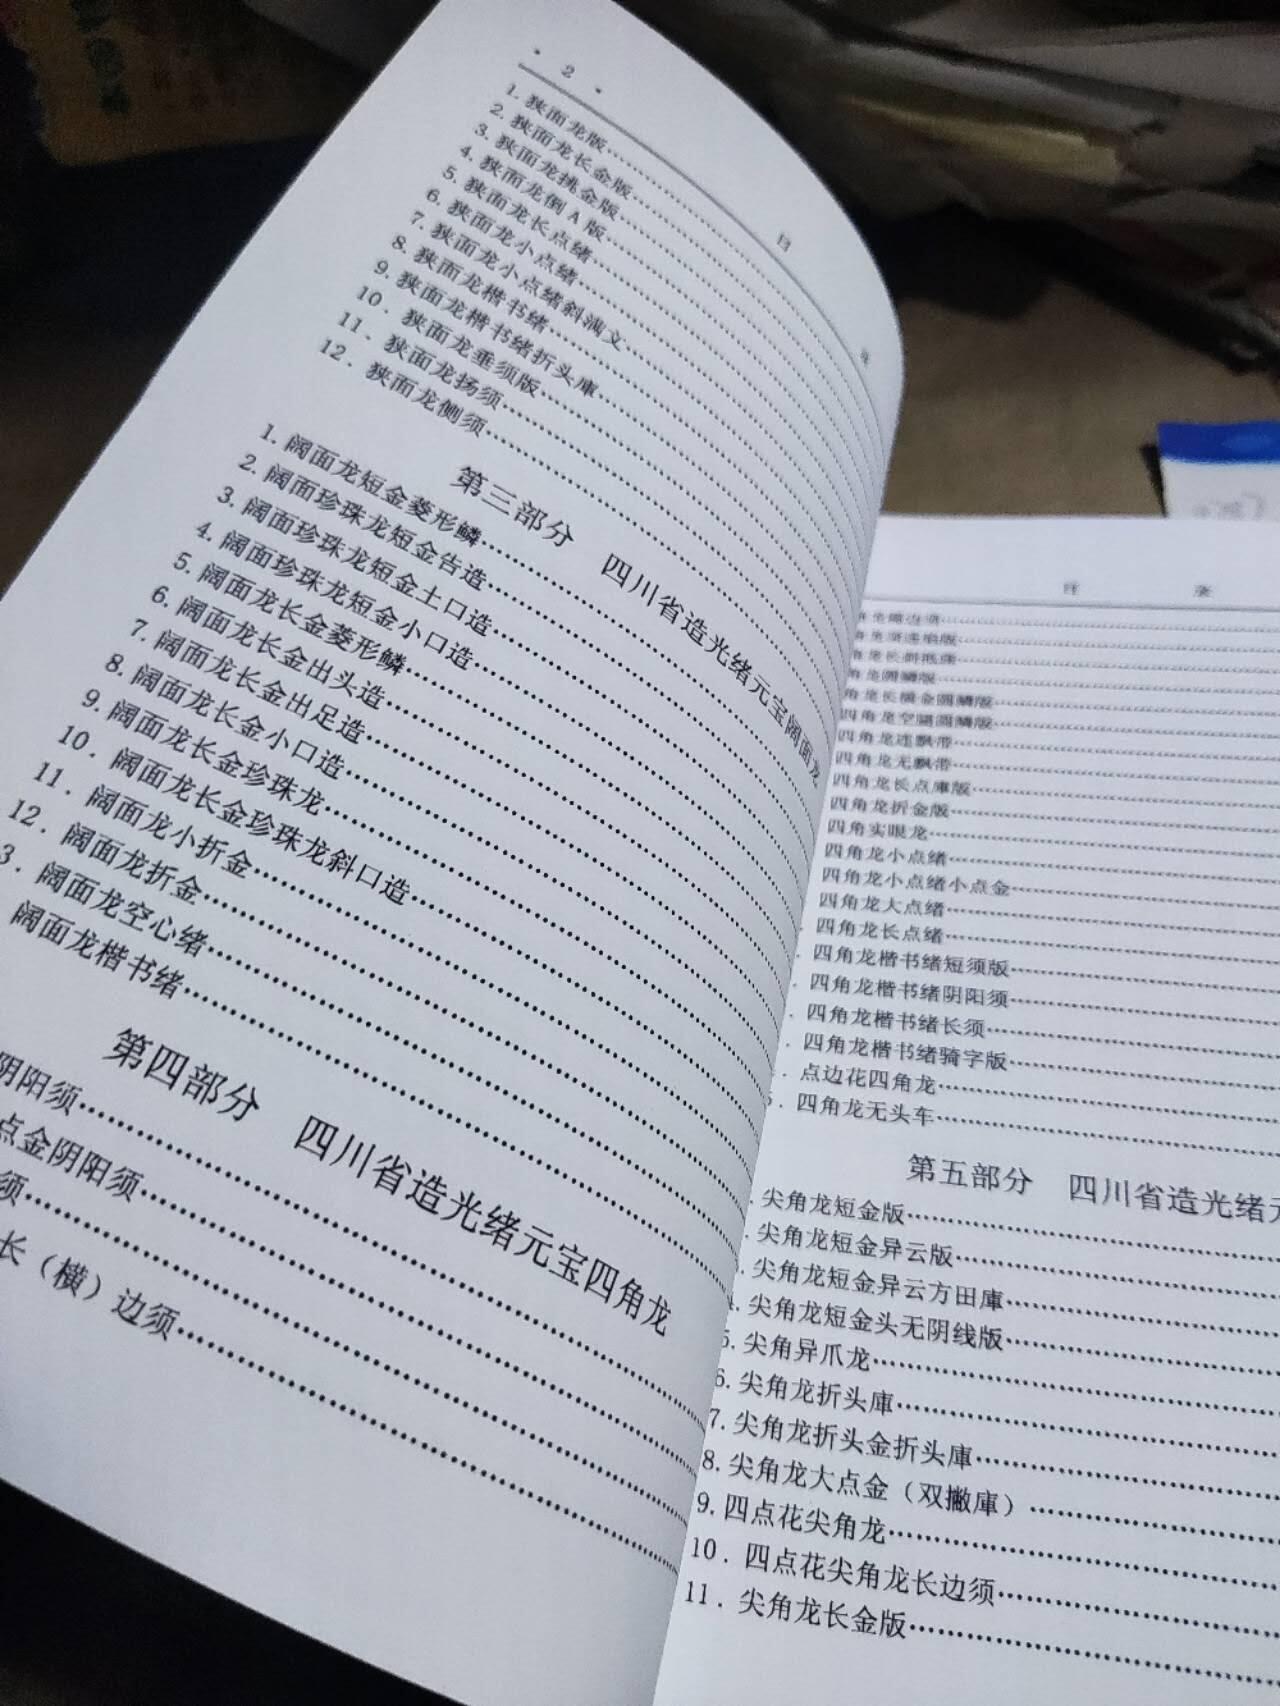 · 2 ·
目
1. 狭面龙版
2. 狭面龙长金版
3. 狭面龙挑金版
4. 狭面龙倒 A 版
5. 狭面龙长点绪
6. 狭面龙小点绪
7. 狭面龙小点绪斜满文
8. 狭面龙楷书绪
9. 狭面龙楷书绪折头庫
10. 狭面龙垂须版
11. 狭面龙扬须
12. 狭面龙侧须
第三部分 四川省造光绪元宝阔面龙
1. 阔面龙短金菱形鳞
2. 阔面珍珠龙短金告造
3. 阔面珍珠龙短金土口造
4. 阔面珍珠龙短金小口造
5. 阔面龙长金菱形鳞
6. 阔面龙长金出头造
7. 阔面龙长金出足造
8. 阔面龙长金小口造
9. 阔面龙长金珍珠龙
10. 阔面龙长金珍珠龙斜口造
11. 阔面龙小折金
12. 阔面龙折金
3. 阔面龙空心绪
阔面龙楷书绪
第四部分 四川省造光绪元宝四角龙
阴阳须
点金阴阳须
须
长（横）边须
目 录
角龙圆鳞版
角龙长横金圆鳞版
四角龙空腿圆鳞版
四角龙连飘带
四角龙无飘带
四角龙长点庫版
四角龙折金版
四角实眼龙
四角龙小点绪
四角龙小点绪小点金
四角龙大点绪
四角龙长点绪
四角龙楷书绪短须版
四角龙楷书绪阴阳须
四角龙楷书绪长须
四角龙楷书绪骑字版
点边花四角龙
5. 四角龙无头车
第五部分 四川省造光绪元
尖角龙短金版
尖角龙短金异云版
3. 尖角龙短金异云方田庫
4. 尖角龙短金头无阴线版
5. 尖角异爪龙
6. 尖角龙折头庫
7. 尖角龙折头金折头庫
8. 尖角龙大点金（双撇庫）
9. 四点花尖角龙
10. 四点花尖角龙长边须
11. 尖角龙长金版